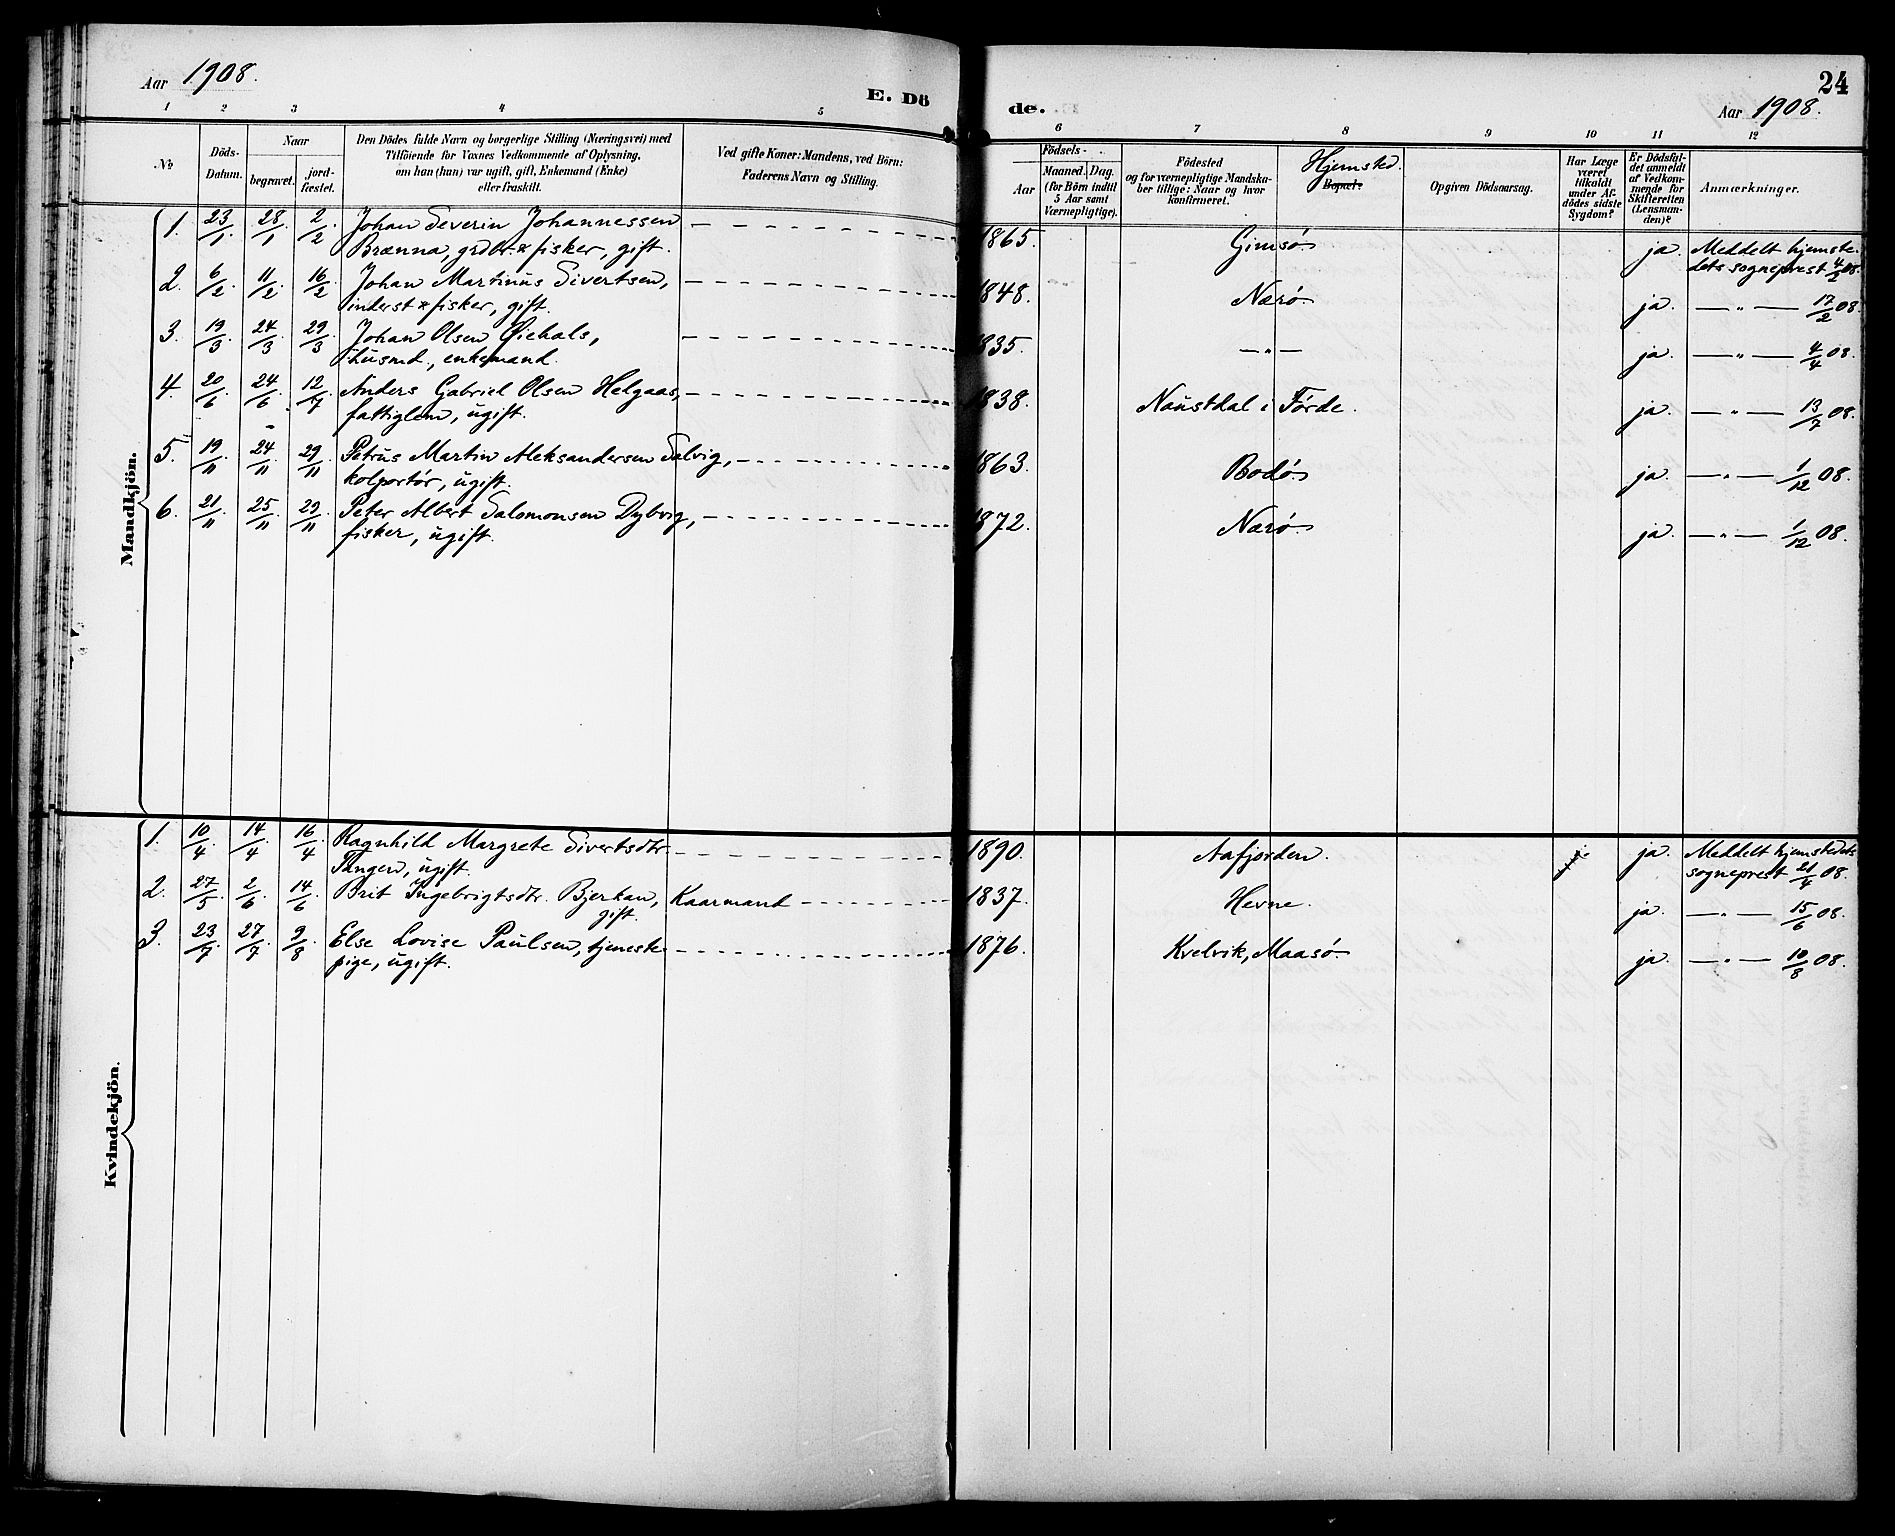 Aar 1908.
E. Dö
1 2 3 4 5
No
Döds-
Datum.
Naar
begravet.
jord-
fæstet.
Den Dödes fulde Navn og borgerlige Stilling (Næringsvei) med
Tilföiende for Voxnes Vedkommende af Oplysning,
om han (hun) var ugift, gift, Enkemand (Enke)
eller fraskilt.
Ved gifte Koner: Mandens, ved Börn:
Faderens Navn og Stilling.
Mandkjön.
1. 23/1. 28/1 2/2. Johan Severin Johannessen
Brænna, grdbr. & fisker, gift.
2. 6/2. 11/2. 16/2 Johan Martinus Sivertsen,
inderst & fisker, gift.
3. 19/3 24/3. 29/3 Johan Olsen Øiehals,
husmd., enkemand.
4. 20/6 24/6. 12/7 Anders Gabriel Olsen Helgaas,
fattiglem, ugift.
5. 19/11. 24/11. 29/11 Petrus Martin Aleksandersen Salvig,
kolportør, ugift.
6. 21/11 25/11 29/11 Peter Albert Salomonsen Dybvig,
fisker, ugift.
Kvindekjön.
1. 10/4. 14/4. 16/4 Ragnhild Margrete Sivertsdtr.
Tangen, ugift.
2. 27/5 2/6. 14/6 Brit Ingebrigtsdtr. Bjerkan, Kaarmand
gift.
3. 23/7 27/7 9/8. Else Lovise Paulsen, tjeneste-
pige, ugift.
24
de.
Aar 1908.
6 7 8 9 10 11 12
Födsels-
Aar
Maaned. Dag.
(for Börn indtil
5 Aar samt
Værnepligtige).
Födested
og for værnepligtige Mandska-
ber tillige: Naar og hvor
konfirmeret.
Hjemsted.
Bopæl.
Opgiven Dödsaarsag.
Har Læge
været
tilkaldt
under Af-
dödes sidste
Sygdom?
Er Dödsfal-
det anmeldt
af Vedkom-
mende for
Skifteretten
(Lensman-
den)?
Anmærkninger.
1865. Gimsø. ja. Meddelt hjemste-
dets sogneprest 4/2 08.
1848. Nærø. ja. — " — 17/2 08.
1835. — " — ja. — " — 4/4 08.
1838. Naustdal i Førde. ja. — " — 13/7 08.
1863. Bodø. ja. — " — 1/12 08.
1872. Nærø. ja. — " — 1/12 08.
1890. Aafjorden. ja. Meddelt hjemstedets
sogneprest 21/4 08.
1837. Hevne. ja. — " — 15/6 08.
1876. Kvelvik, Maasø. ja. — " — 10/8 08.